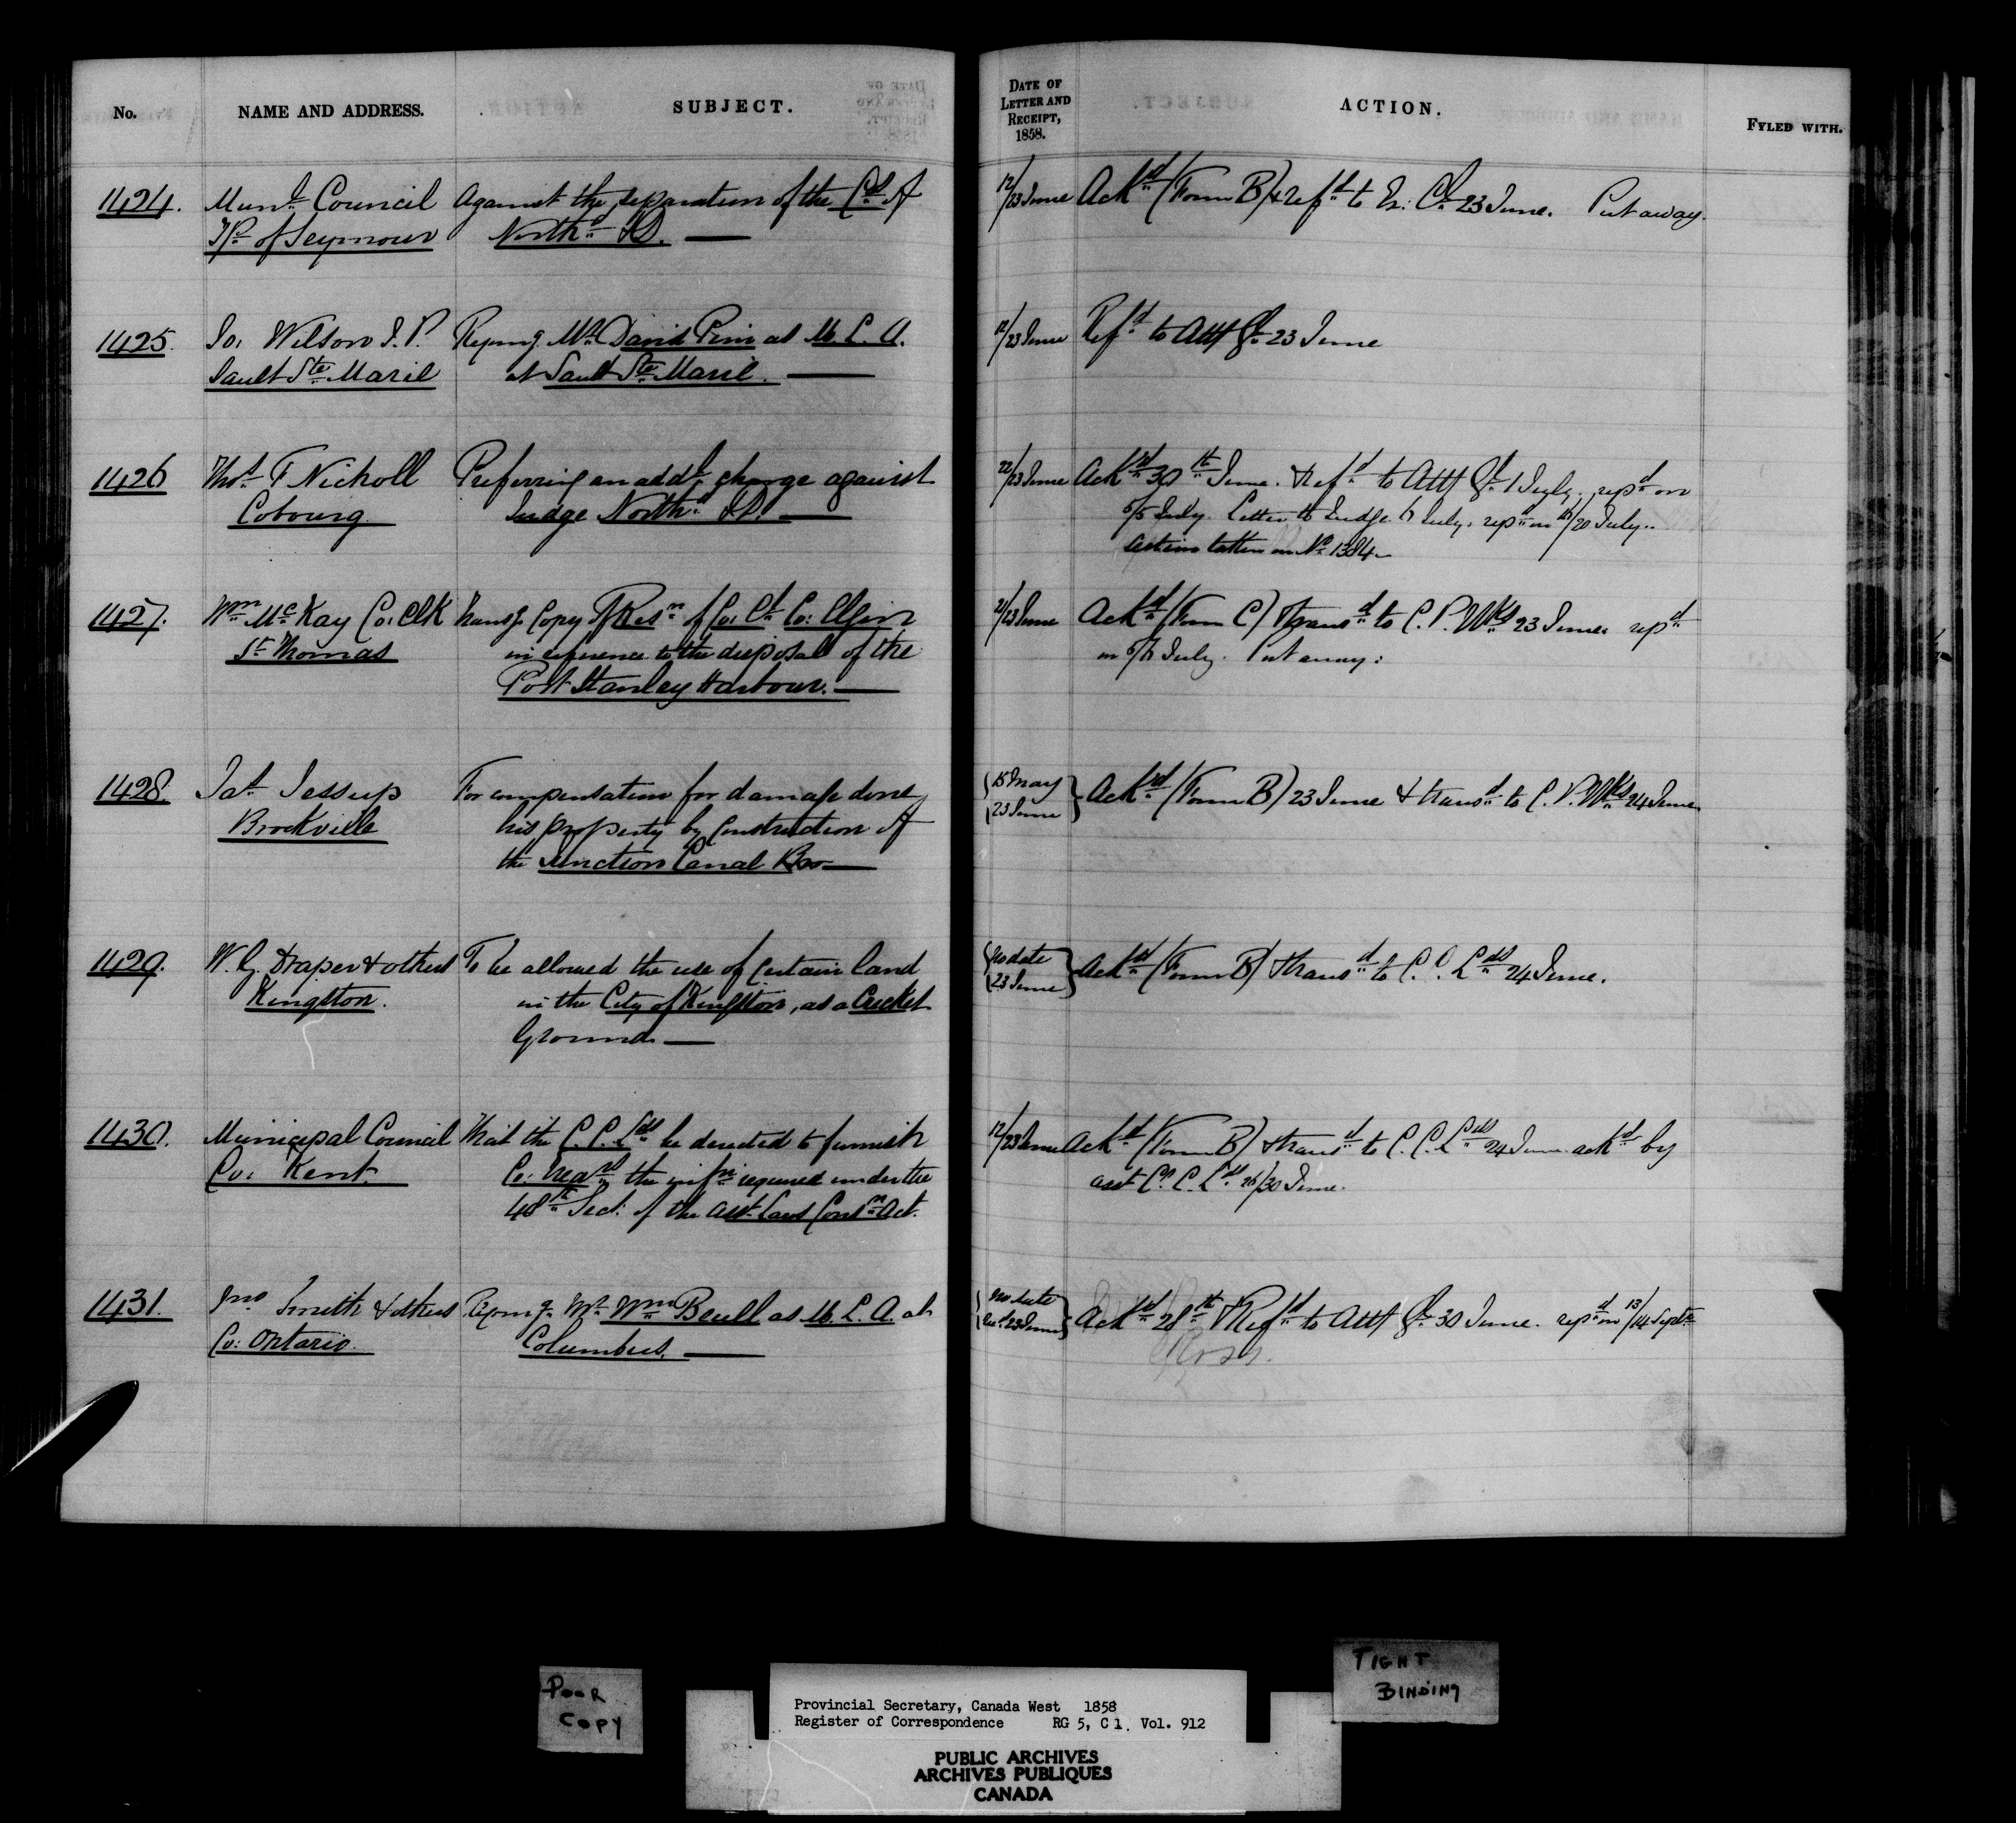 No.
NAME AND ADDRESS.
SUBJECT.
DATE OF
LETTER AND
RECEIPT,
1858.
ACTION.
FYLED WITH.
1424. Munl. Council Against the separation of the Cos. of
Tp. of Seymour Northd. & D. —
12/23 June Ackd. (Form B) & refd. to Ex: Cl. 23 June. Put away.
1425. Jos. Wilson J. P. Repng. Mr. David Pim as M. L. A.
Sault Ste. Marie at Sault Ste. Marie. —
12/23 June Refd. to Atty Gl. 23 June
1426 Thos. F Nicholl Preferring an addl. charge against
Cobourg. Judge Northd. & D. —
22/23 June Ackd. 30th June. & refd. to Atty Gl. 1 July. repd. on
5/5 July. Letter to Judge 6 July. repd. on 16/20 July.
Action taken on No. 1384
1427. Wm. McKay Co. Clk Transg. Copy of Resn. of Co. Cl. Co: Elgin
St. Thomas in reference to the disposal of the
Port Stanley Harbour. —
21/23 June Ackd. (Form C) & transd. to C. P. Wks. 23 June. repd.
on 5/6 July. Put away.
1428. Jas. Jessup For compensation for damage done
Brockville his property by construction of
the Junction Canal —
15 May
23 June
Ackd. (Form B) 23 June & transd. to C. P. Wks. 24 June.
1429. W. G. Draper & others To be allowed the use of certain land
Kingston. in the City of Kingston, as a Cricket
Ground. —
No date
23 June
Ackd. (Form B) & transd. to C. C. Lds. 24 June.
1430. Municipal Council That the C. C. Lds. be directed to furnish
Co: Kent. Co: Treasr. the infn. required under the
48th Sect: of the Asst. Laws Consn. Act.
12/23 June Ackd. (Form B) & transd. to C. C. Lds. 24 June. ackd. by
asst. C. C. Lds. 26/30 June.
1431. Jno Smith & others Repng. Mr. Wm. Beull as M. L. A. at
Co: Ontario. Columbus. —
No date
Recd. 23 June
Ackd. 28th & Refd. to Atty Gl. 30 June. repd. on 13/14 Septr.
POOR
COPY
Provincial Secretary, Canada West 1858
Register of Correspondence RG 5, C 1, Vol. 912
PUBLIC ARCHIVES
ARCHIVES PUBLIQUES
CANADA
TIGHT
BINDING